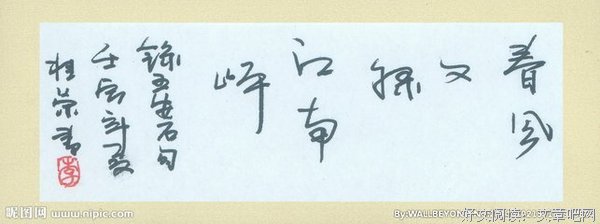 春風
又
绿
江南
岸
錄王安石句
壬辰夏
桂荣書
李
昵图网 www.nipic.com
By:WALLBEYOND